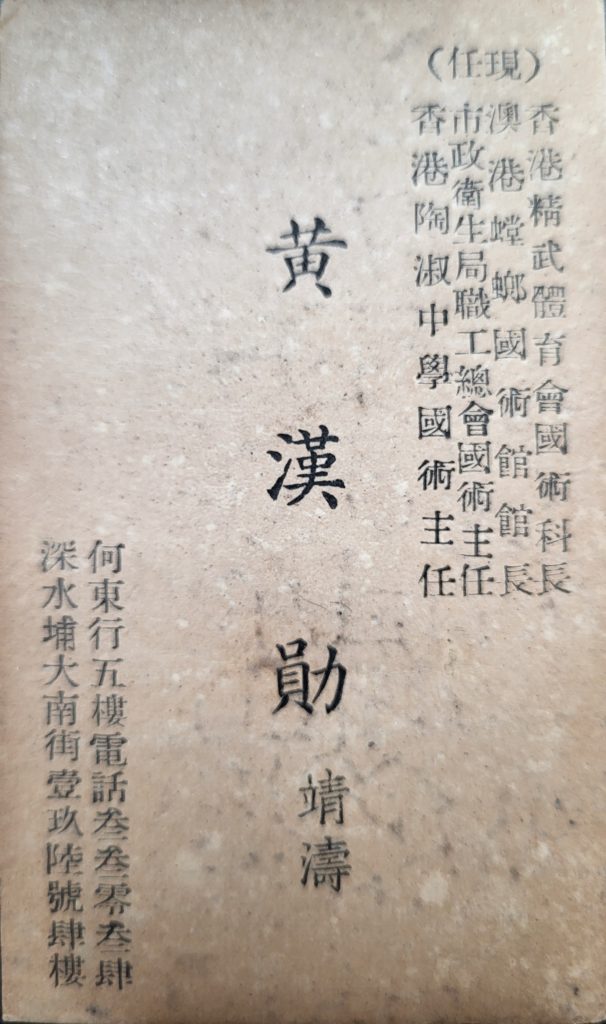 （現任）
香港精武體育會國術科長
澳港螳螂國術館館長
市政衛生局職工總會國術主任
香港陶淑中學國術主任
黃漢勛
靖濤
何東行五樓電話叁叁零叁肆
深水埔大南街壹玖陸號肆樓